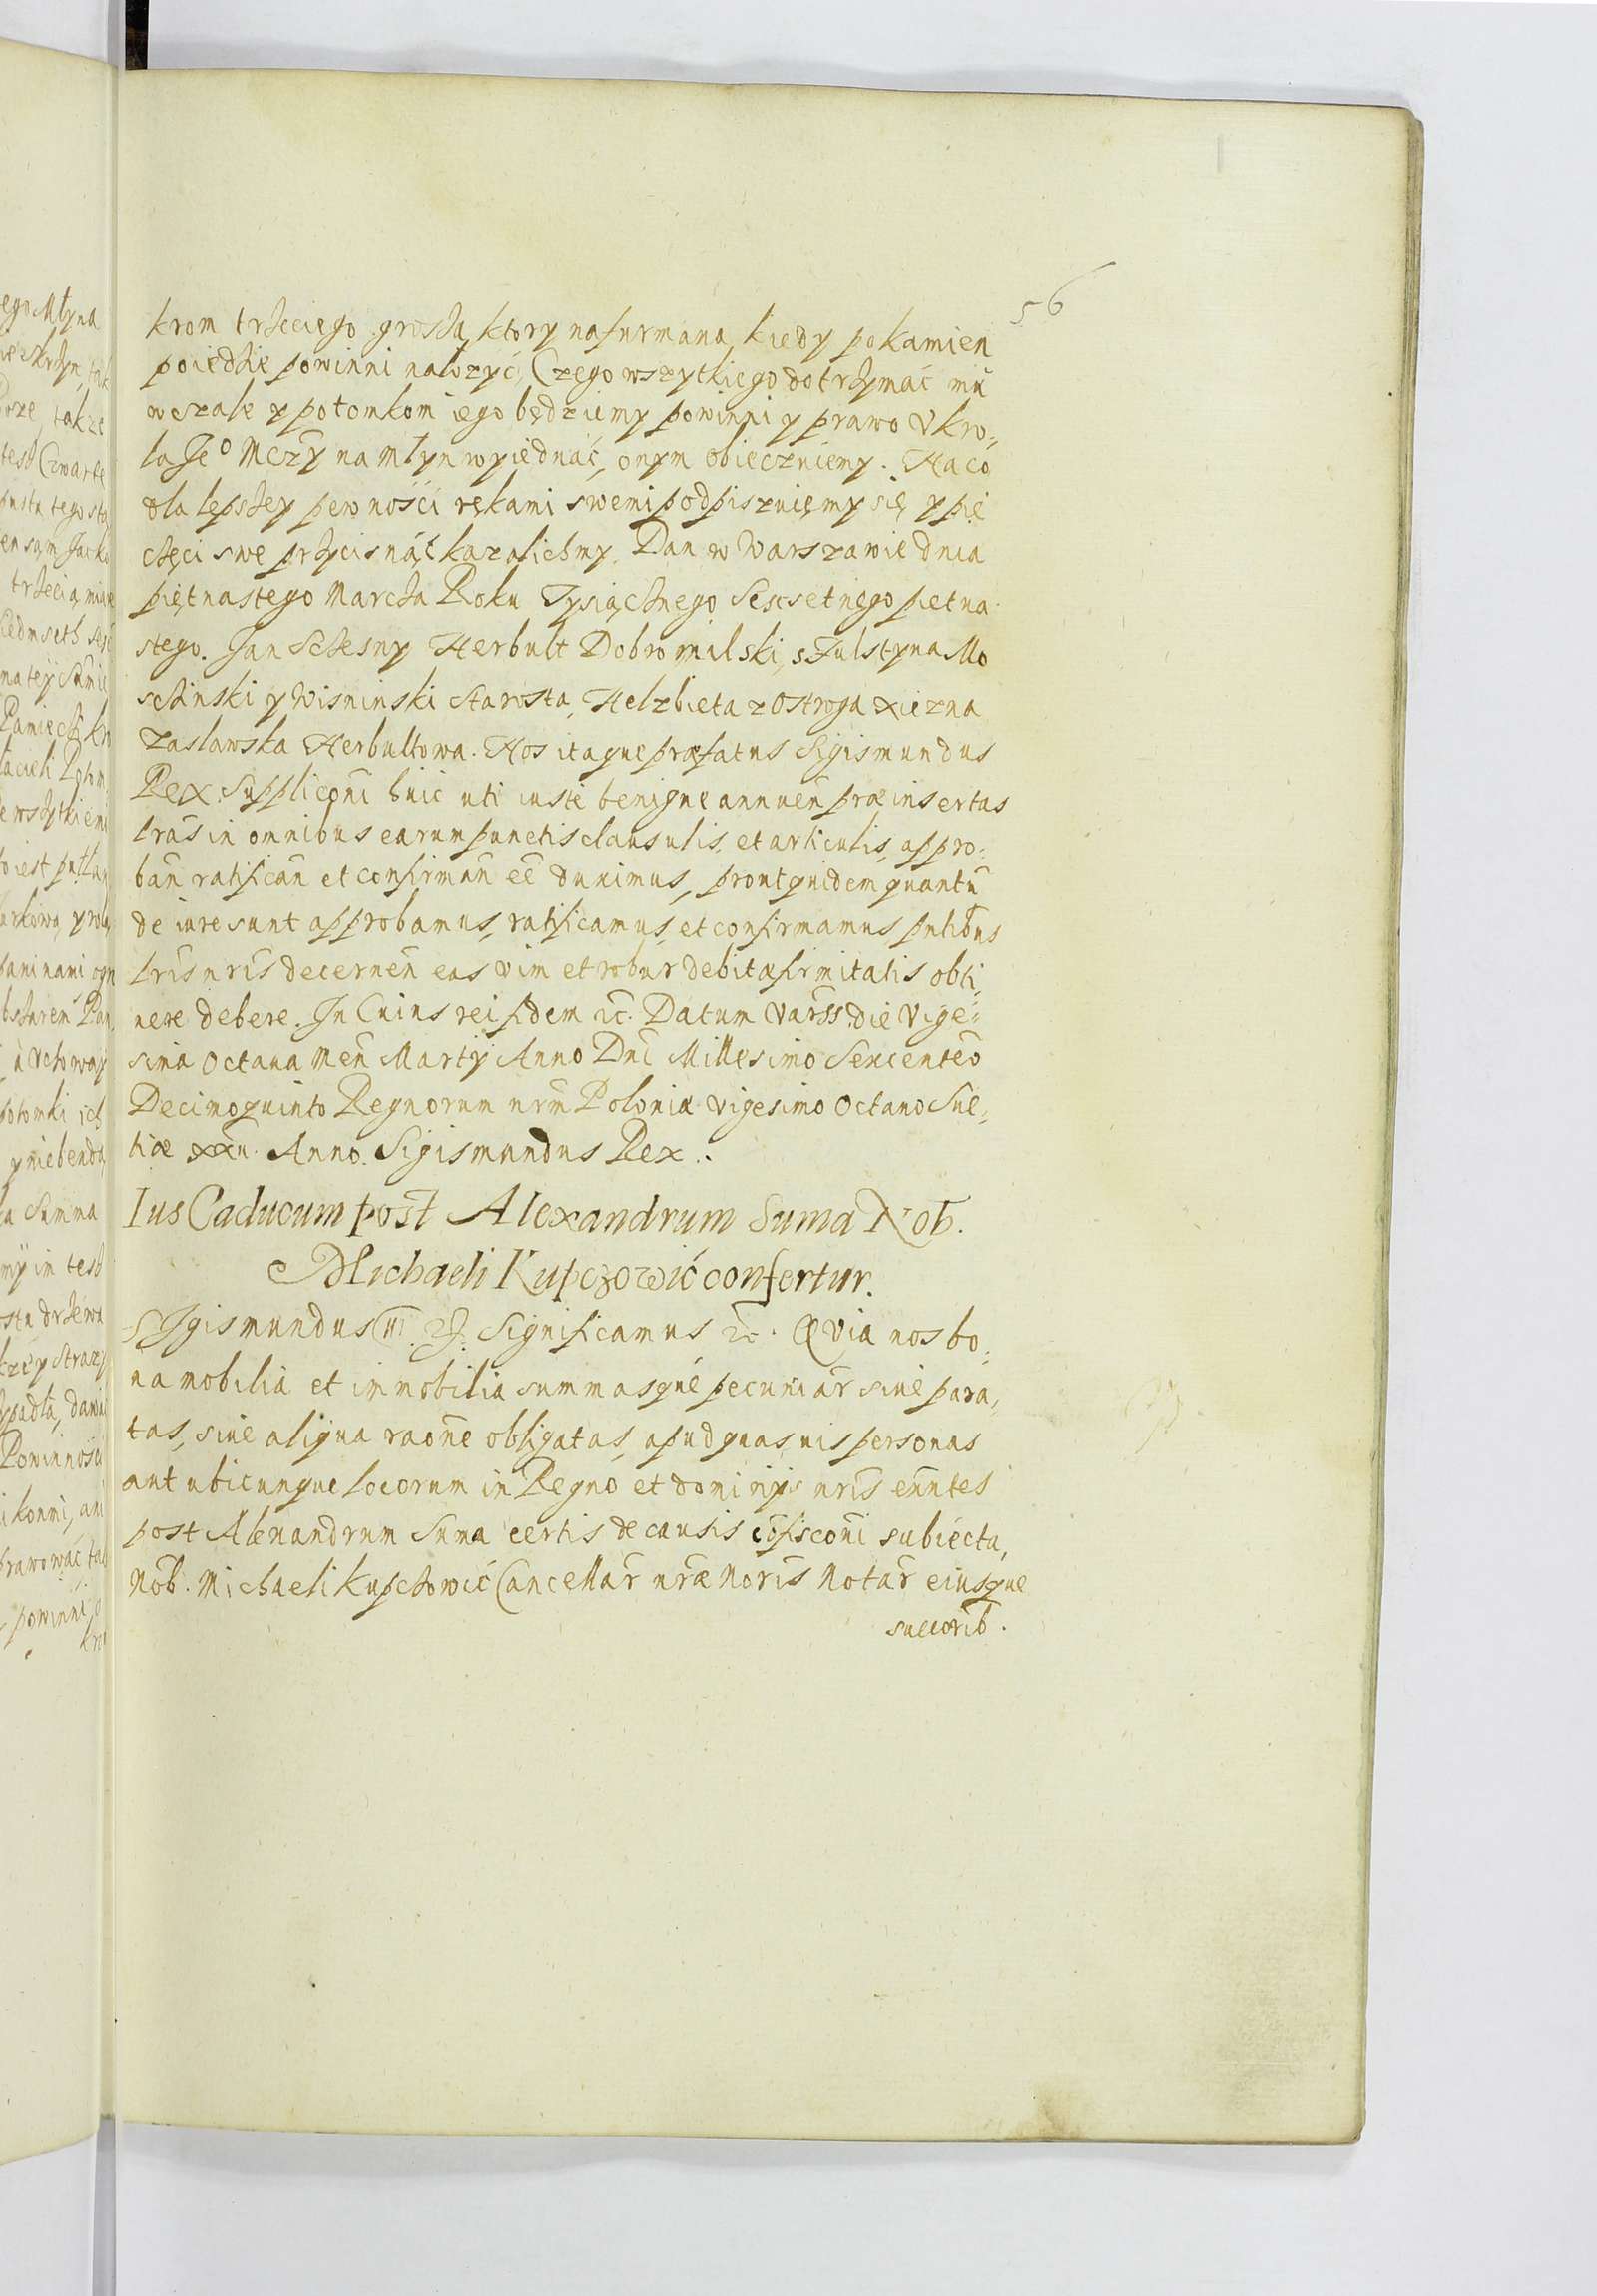 56
krom trzeciego grosza, ktory nafurmana, kiedy pokamien
poiedzie powinni nalozyć, Czego wszytkiego dotrzymać mũ
wczale y potomkom iego będziemy powinni y prawo Vkro,,
la Jeo Mczy na Młyn wyiednać, onym obiecznięmy. Naco
dla lepszey pewnośći rękami swemi podpisznięmy się, y pie
częci swe przycisnąć kazalichmy. Dan w Warszawie dnia
piętnastego Marcza Roku Tysiącznego Sescsetnego pietna
stego. Jan Sczesny Herbult Dobromilski, s Fulstyna Mo
sczinski y Wisninski Starosta, Helzbieta z Ostroga xiezna
Zaslawska Herbultowa. Nos itaque præfatus Sigismundus
Rex. Suppliconi huic uti iuste benigne annuen̄ præinsertas
lrãs in omnibus earum punctis clausulis, et articulis, appro,,
ban̄ ratifican̄ et confirman̄ eẽ duximus, prout quidem quantũ
de iure sunt approbamus, ratificamus, et confirmamus pntibus
lris nris decernen̄ eas vim et robur debitæ firmitatis obti,,
nere debere. In Cuius rei fidem &c. Datum Varss. die Vige,,
sima Octaua Men̄ Martÿ Anno Dnĩ Millesimo Sexcenteo
Decimoquinto Regnorum nrm̄ Poloniæ vigesimo Octauo Sue,,
tiæ xxii. Anno. Sigismundus Rex.
Ius Caducum post Alexandrum Suma Nob.
Michaeli Kupczowić confertur.
SIgismundus III. Significamus &c. Quia nos bo,,
na mobilia et immobilia summasque pecuniar̄ siue para,,
tas, siue aliqua raone obligatas, apud quasuis personas
aut ubicunque locorum in Regno et dominijs nris enntes
post Alexandrum Suma certis de causis cõfisconi subiecta,
Nob. Michaeli Kupczowić Cancellar̄ nræ Moris Notar̄ eiusque
succorib.